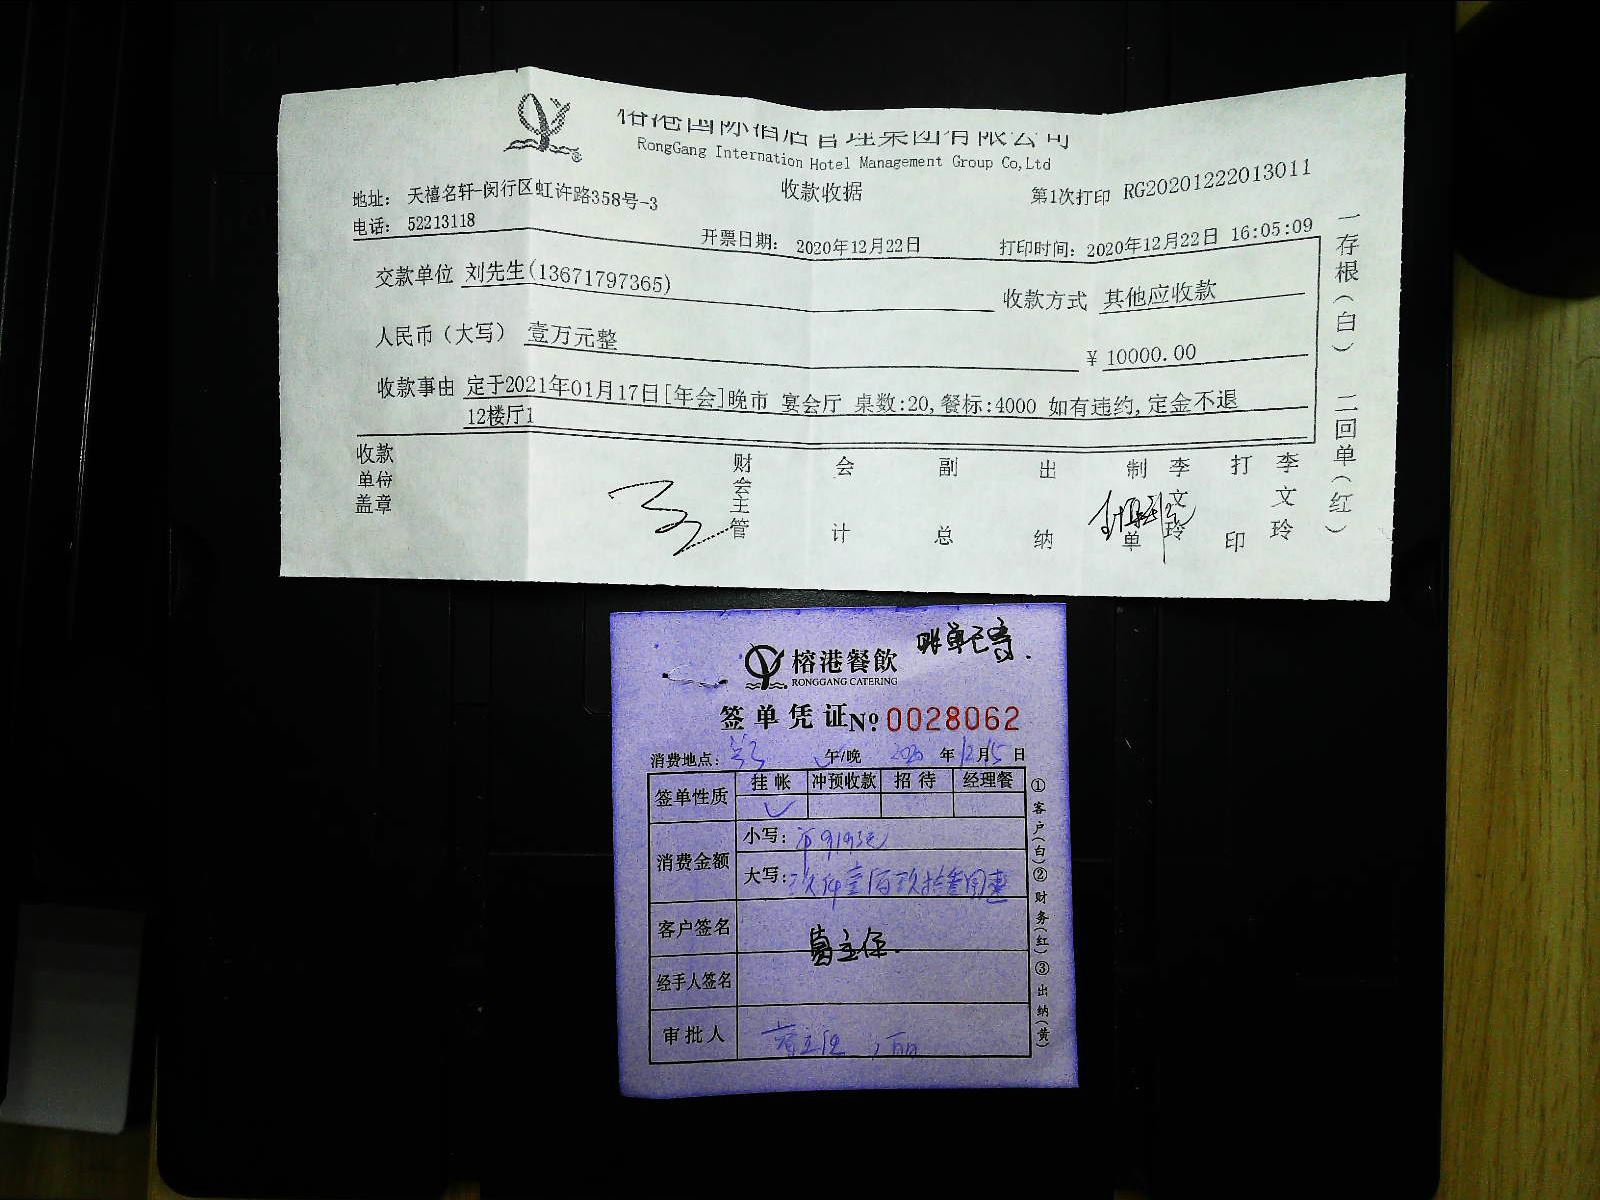 榕港国际酒店管理集团有限公司
RongGang Internation Hotel Management Group Co,Ltd
收款收据
第1次打印 RG20201222013011
地址: 天禧名轩-闵行区虹许路358号-3
电话: 52213118
开票日期: 2020年12月22日
打印时间: 2020年12月22日 16:05:09
交款单位 刘先生(13671797365)
收款方式 其他应收款
人民币（大写） 壹万元整
¥ 10000.00
收款事由 定于2021年01月17日[年会]晚市 宴会厅 桌数:20,餐标:4000 如有违约,定金不退
12楼厅1
收款单位盖章
财会主管
会计
副总
出纳
制单 李文玲
打印 李文玲
一存根（白） 二回单（红）
账单已寄.
榕港餐飲
RONGGANG CATERING
签单凭证 № 0028062
消费地点: 午/晚 2020 年 12 月 15 日
签单性质 挂帐 冲预收款 招待 经理餐
消费金额
小写: 9193元
大写: 玖仟壹佰玖拾叁圆整
客户签名
经手人签名
审批人
①客户(白)②财务(红)③出纳(黄)